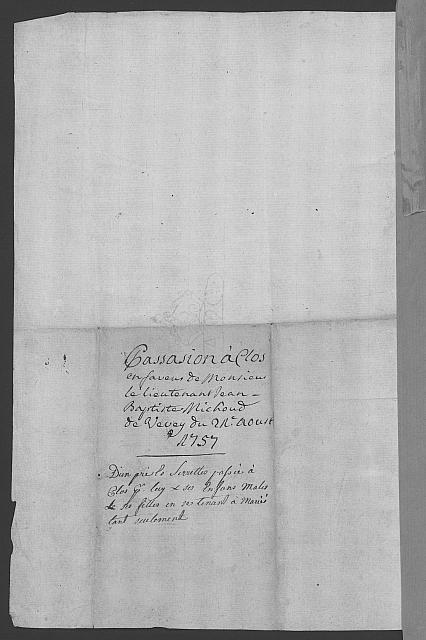 Passasion à Clos
en faveur de Monsieur
le lieutenant Jean-
Baptiste Michoud
de Vevey du 21e Aoust
1757
D'un pré les passée à
Clos pr luy & ses Enfans Males
& ses filles en se tenant à Marié
tant seulement